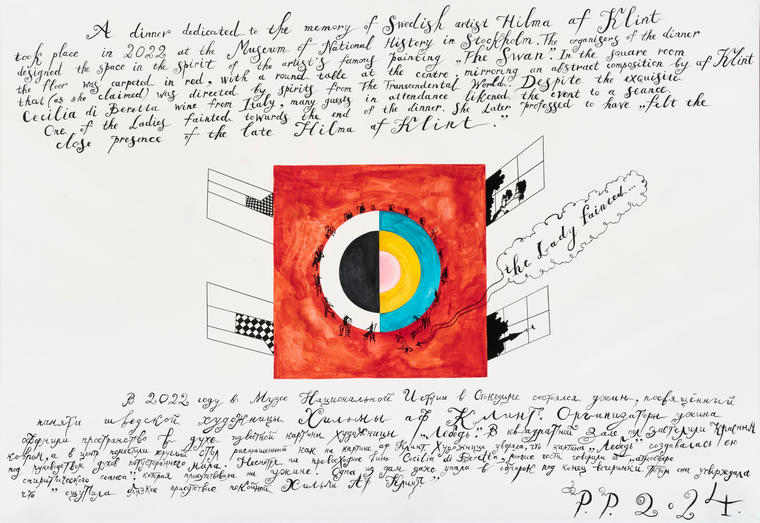 A dinner dedicated to the memory of Swedish artist Hilma af Klint
took place in 2022 at the Museum of National History in Stockholm. The organisers of the dinner
designed the space in the spirit of the artist's famous painting „The Swan". In the square room
the floor was carpeted in red, with a round table at the centre, mirroring an abstract composition by af Klint
that (as she claimed) was directed by spirits from The Transcendental World. Despite the exquisite
Cecilia di Beretta wine from Italy, many guests in attendance likened the event to a seance.
One of the Ladies fainted towards the end of the dinner. She Later professed to have „felt the
close presence of the late Hilma af Klint."
the Lady fainted...
В 2022 году в Музее Национальной Истории в Стокгольме состоялся ужин, посвящённый
памяти шведской художницы Хильмы аф Клинт. Организаторы ужина
оформили пространство в духе известной картины художницы „Лебедь". В квадратной зале пол застелили красным
ковром, а в центр поместили круглый стол раскрашенный как на картине аф Клинт. Художница уверяла, что картина „Лебедь" создавалась ею
под руководством духов потустороннего мира. Несмотря на превосходное вино Cecilia di Beretta, многие гости говорили об атмосфере
спиритического сеанса, которая присутствовала на ужине. Одна из дам даже упала в обморок под конец вечеринки. Потом она утверждала
что "ощутила близкое присутствие покойной Хильмы Аф Клинт"
P.P. 2024.